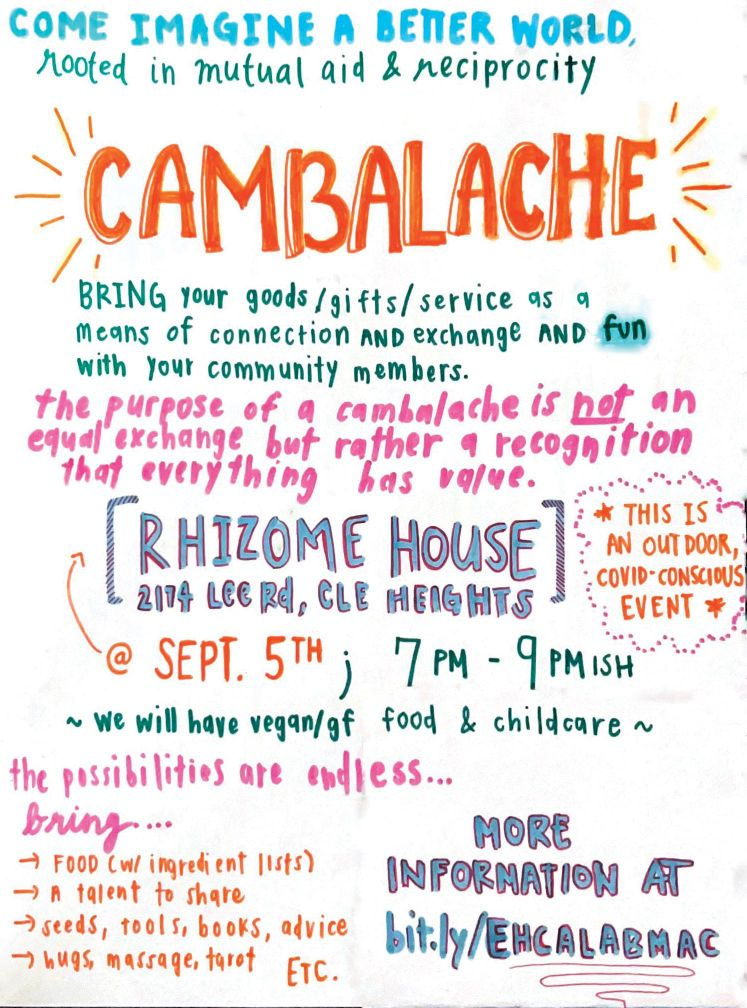 COME IMAGINE A BETTER WORLD,
rooted in mutual aid & reciprocity
CAMBALACHE
BRING your goods/gifts/service as a
means of connection AND exchange AND fun
with your community members.
the purpose of a cambalache is not an
equal exchange but rather a recognition
that everything has value.
[RHIZOME HOUSE]
2174 Lee Rd, CLE HEIGHTS
* THIS IS
AN OUTDOOR,
COVID-CONSCIOUS
EVENT *
@ SEPT. 5TH ; 7PM - 9PMISH
~ we will have vegan/gf food & childcare ~
the possibilities are endless...
bring....
→ FOOD (w/ ingredient lists)
→ A talent to share
→ seeds, tools, books, advice
→ hugs, massage, tarot ETC.
MORE
INFORMATION AT
bit.ly/EHCALABMAC